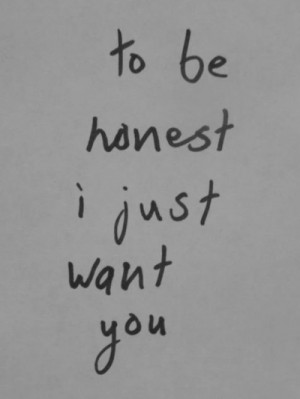 to be
honest
i just
want
you